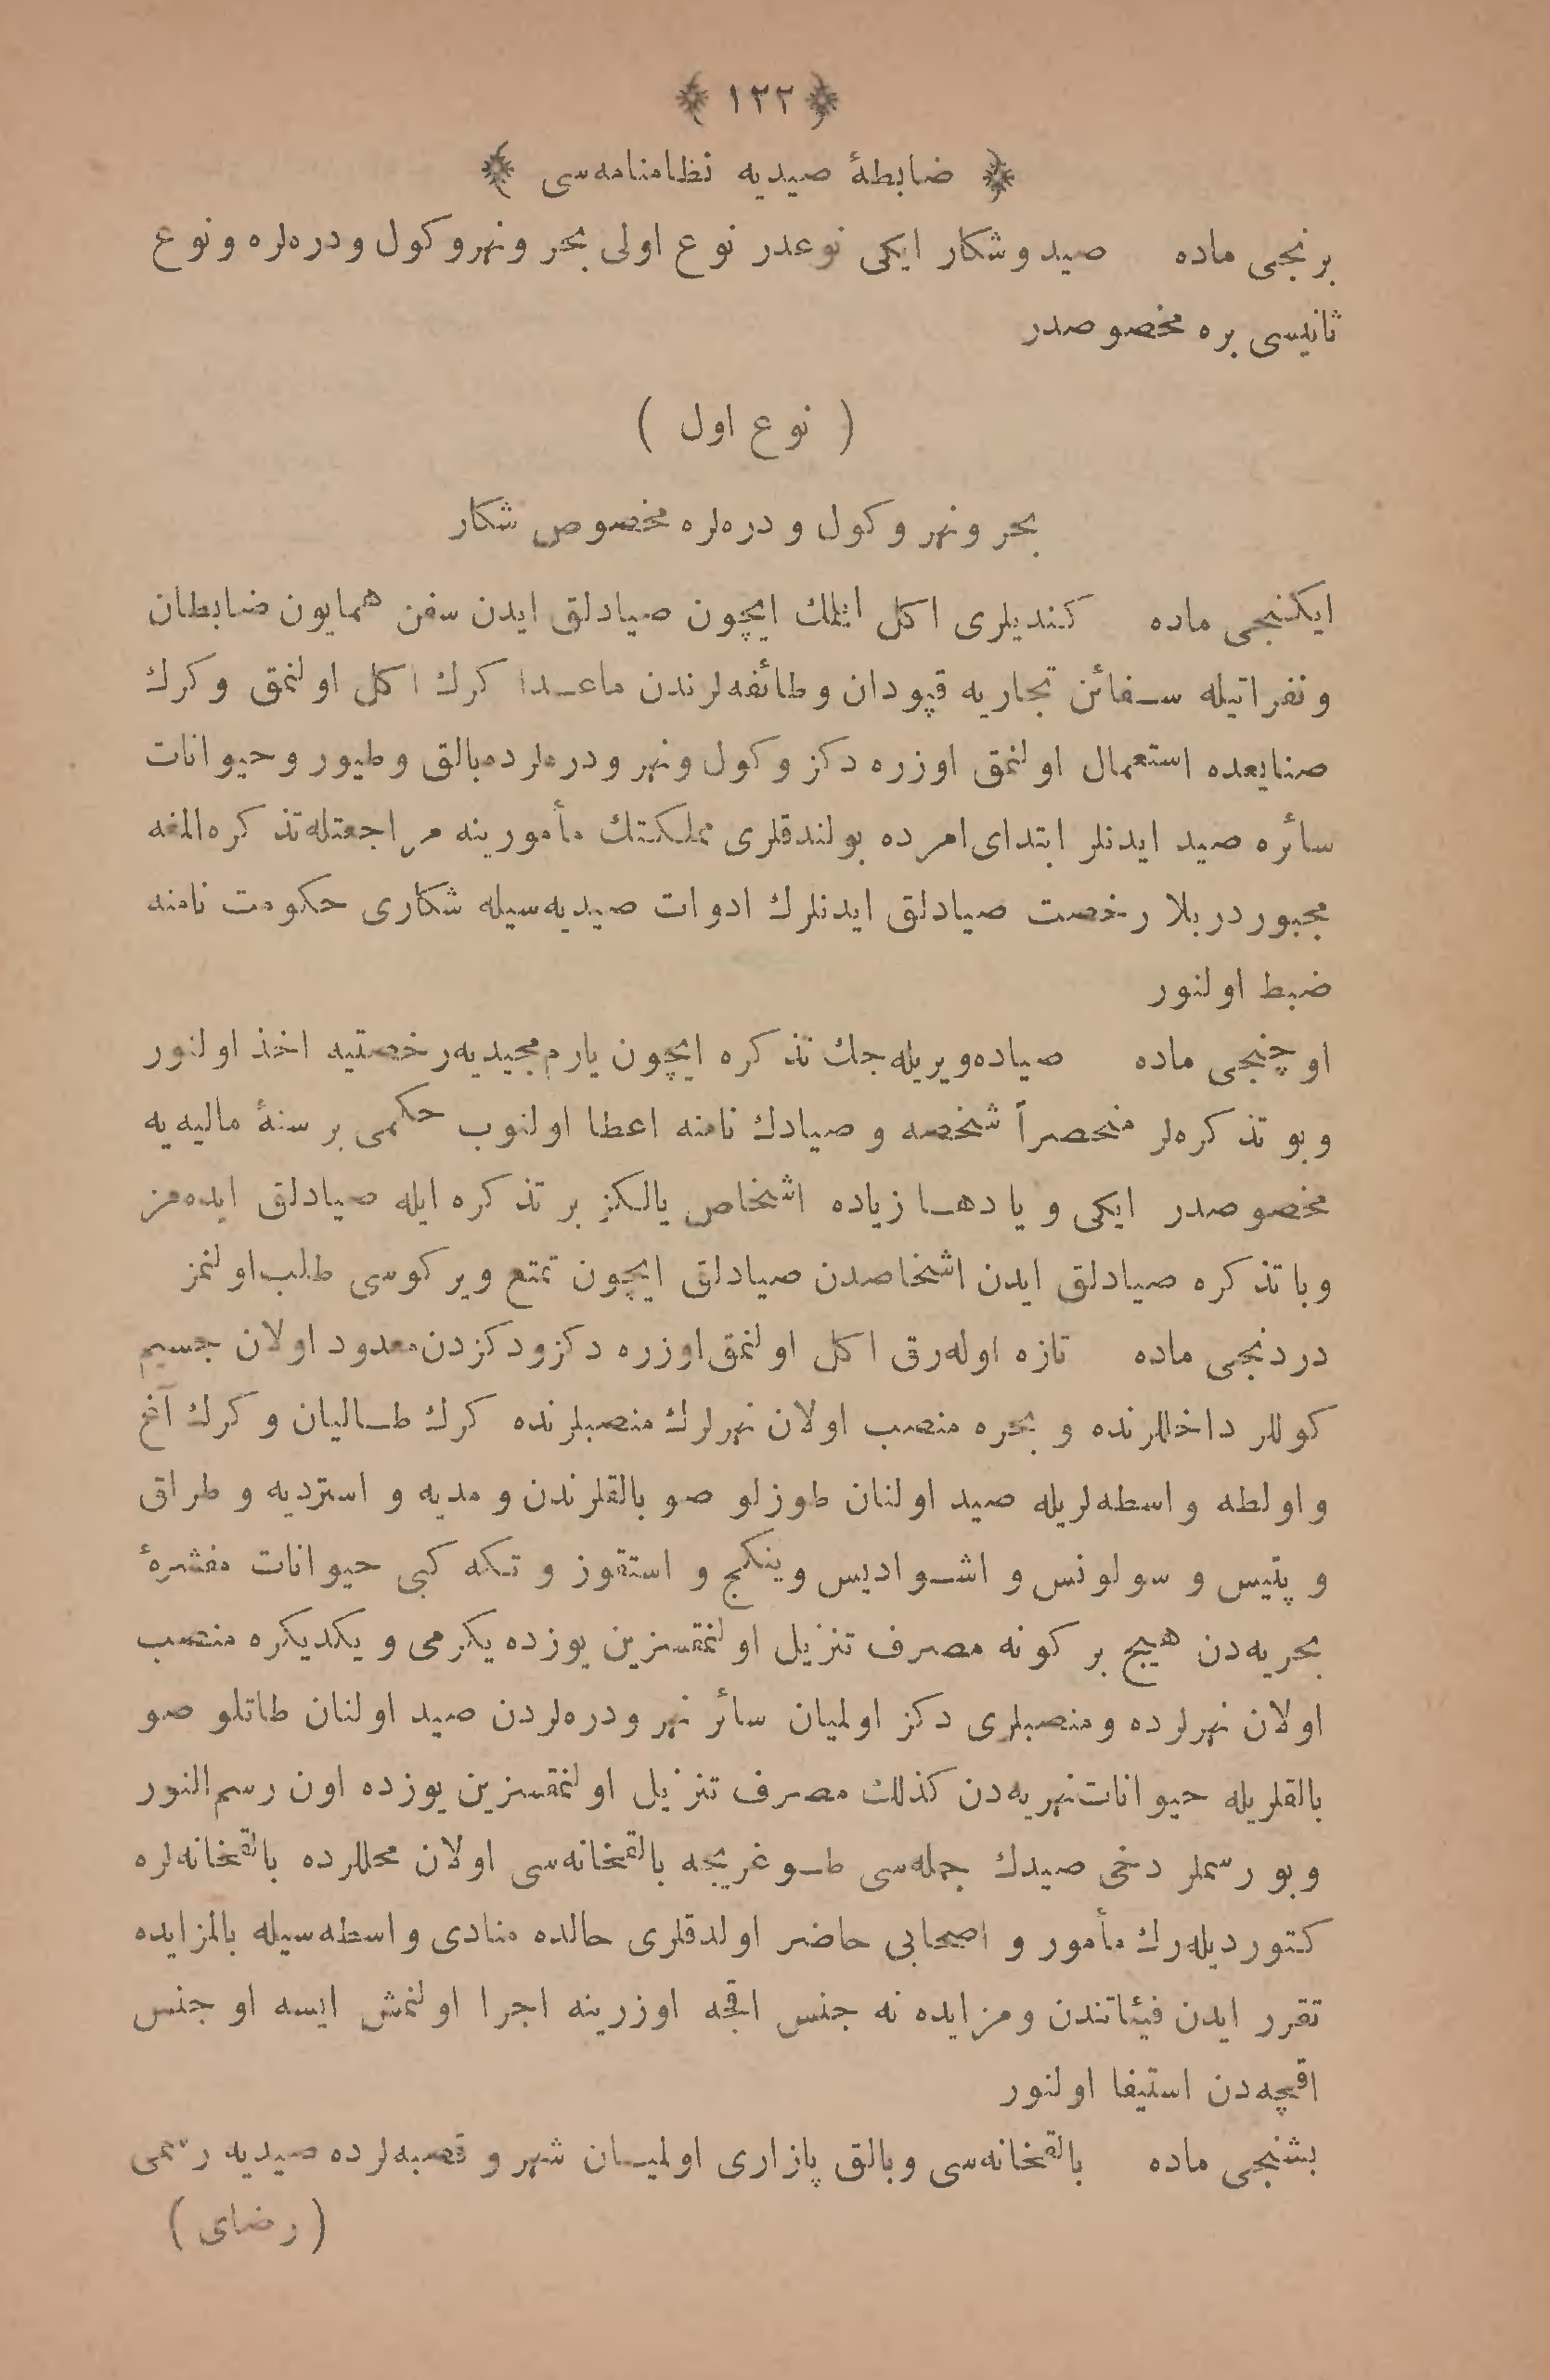 ﴿ ١٢٢ ﴾
﴿ ضابطهٔ صیدیه نظامنامه‌سی ﴾
برنجی ماده صید و شکار ایکی نوعدر نوع اولی بحر و نهر و کول و دره‌لره و نوع
ثانیسی بره مخصوصدر
( نوع اول )
بحر و نهر و کول و دره‌لره مخصوص شکار
ایکنجی ماده کندیلری اکل ایتمك ایچون صیادلق ایدن سفن همایون ضابطان
و نفراتیله سفائن تجاریه قپودان و طائفه‌لرندن ماعدا کرك اکل اولنمق و کرك
صنایعده استعمال اولنمق اوزره دکز و کول و نهر و دره‌لرده بالق و طیور و حیوانات
سائره صید ایدنلر ابتدای امرده بولندقلری مملکتك مأمورینه مراجعتله تذکره المغه
مجبوردر بلا رخصت صیادلق ایدنلرك ادوات صیدیه‌سیله شکاری حکومت نامنه
ضبط اولنور
اوچنجی ماده صیاده ویریله‌جك تذکره ایچون یارم مجیدیه رخصتیه اخذ اولنور
و بو تذکره‌لر منحصراً شخصه و صیادك نامنه اعطا اولنوب حکمی بر سنهٔ مالیه‌یه
مخصوصدر ایکی و یا دها زیاده اشخاص یالکز بر تذکره ایله صیادلق ایده‌مز
و با تذکره صیادلق ایدن اشخاصدن صیادلق ایچون تمتع ویرکوسی طلب اولنمز
دردنجی ماده تازه اوله‌رق اکل اولنمق اوزره دکز و دکزدن معدود اولان جسیم
کوللر داخللرنده و بحره منصب اولان نهرلرك منصبلرنده کرك طالیان و کرك آغ
و اولطه واسطه‌لریله صید اولنان طوزلو صو بالقلرندن و مدیه و استردیه و طراق
و پتیس و سولونس و اشوادیس و ینکج و استقوز و تکه کبی حیوانات مقشرهٔ
بحریه‌دن هیچ بر کونه مصرف تنزیل اولنمقسزین یوزده یکرمی و یکدیکره منصب
اولان نهرلرده و منصبلری دکز اولمیان سائر نهر و دره‌لردن صید اولنان طاتلو صو
بالقلریله حیوانات نهریه‌دن کذلك مصرف تنزیل اولنمقسزین یوزده اون رسم النور
و بو رسملر دخی صیدك جمله‌سی طوغریجه بالقخانه‌سی اولان محللرده بالقخانه‌لره
کتوردیله‌رك مأمور و اصحابی حاضر اولدقلری حالده منادی واسطه‌سیله بالمزایده
تقرر ایدن فیئاتندن و مزایده نه جنس اقچه اوزرینه اجرا اولنمش ایسه او جنس
اقچه‌دن استیفا اولنور
بشنجی ماده بالقخانه‌سی و بالق پازاری اولمیان شهر و قصبه‌لرده صیدیه رسمی
( رضای )